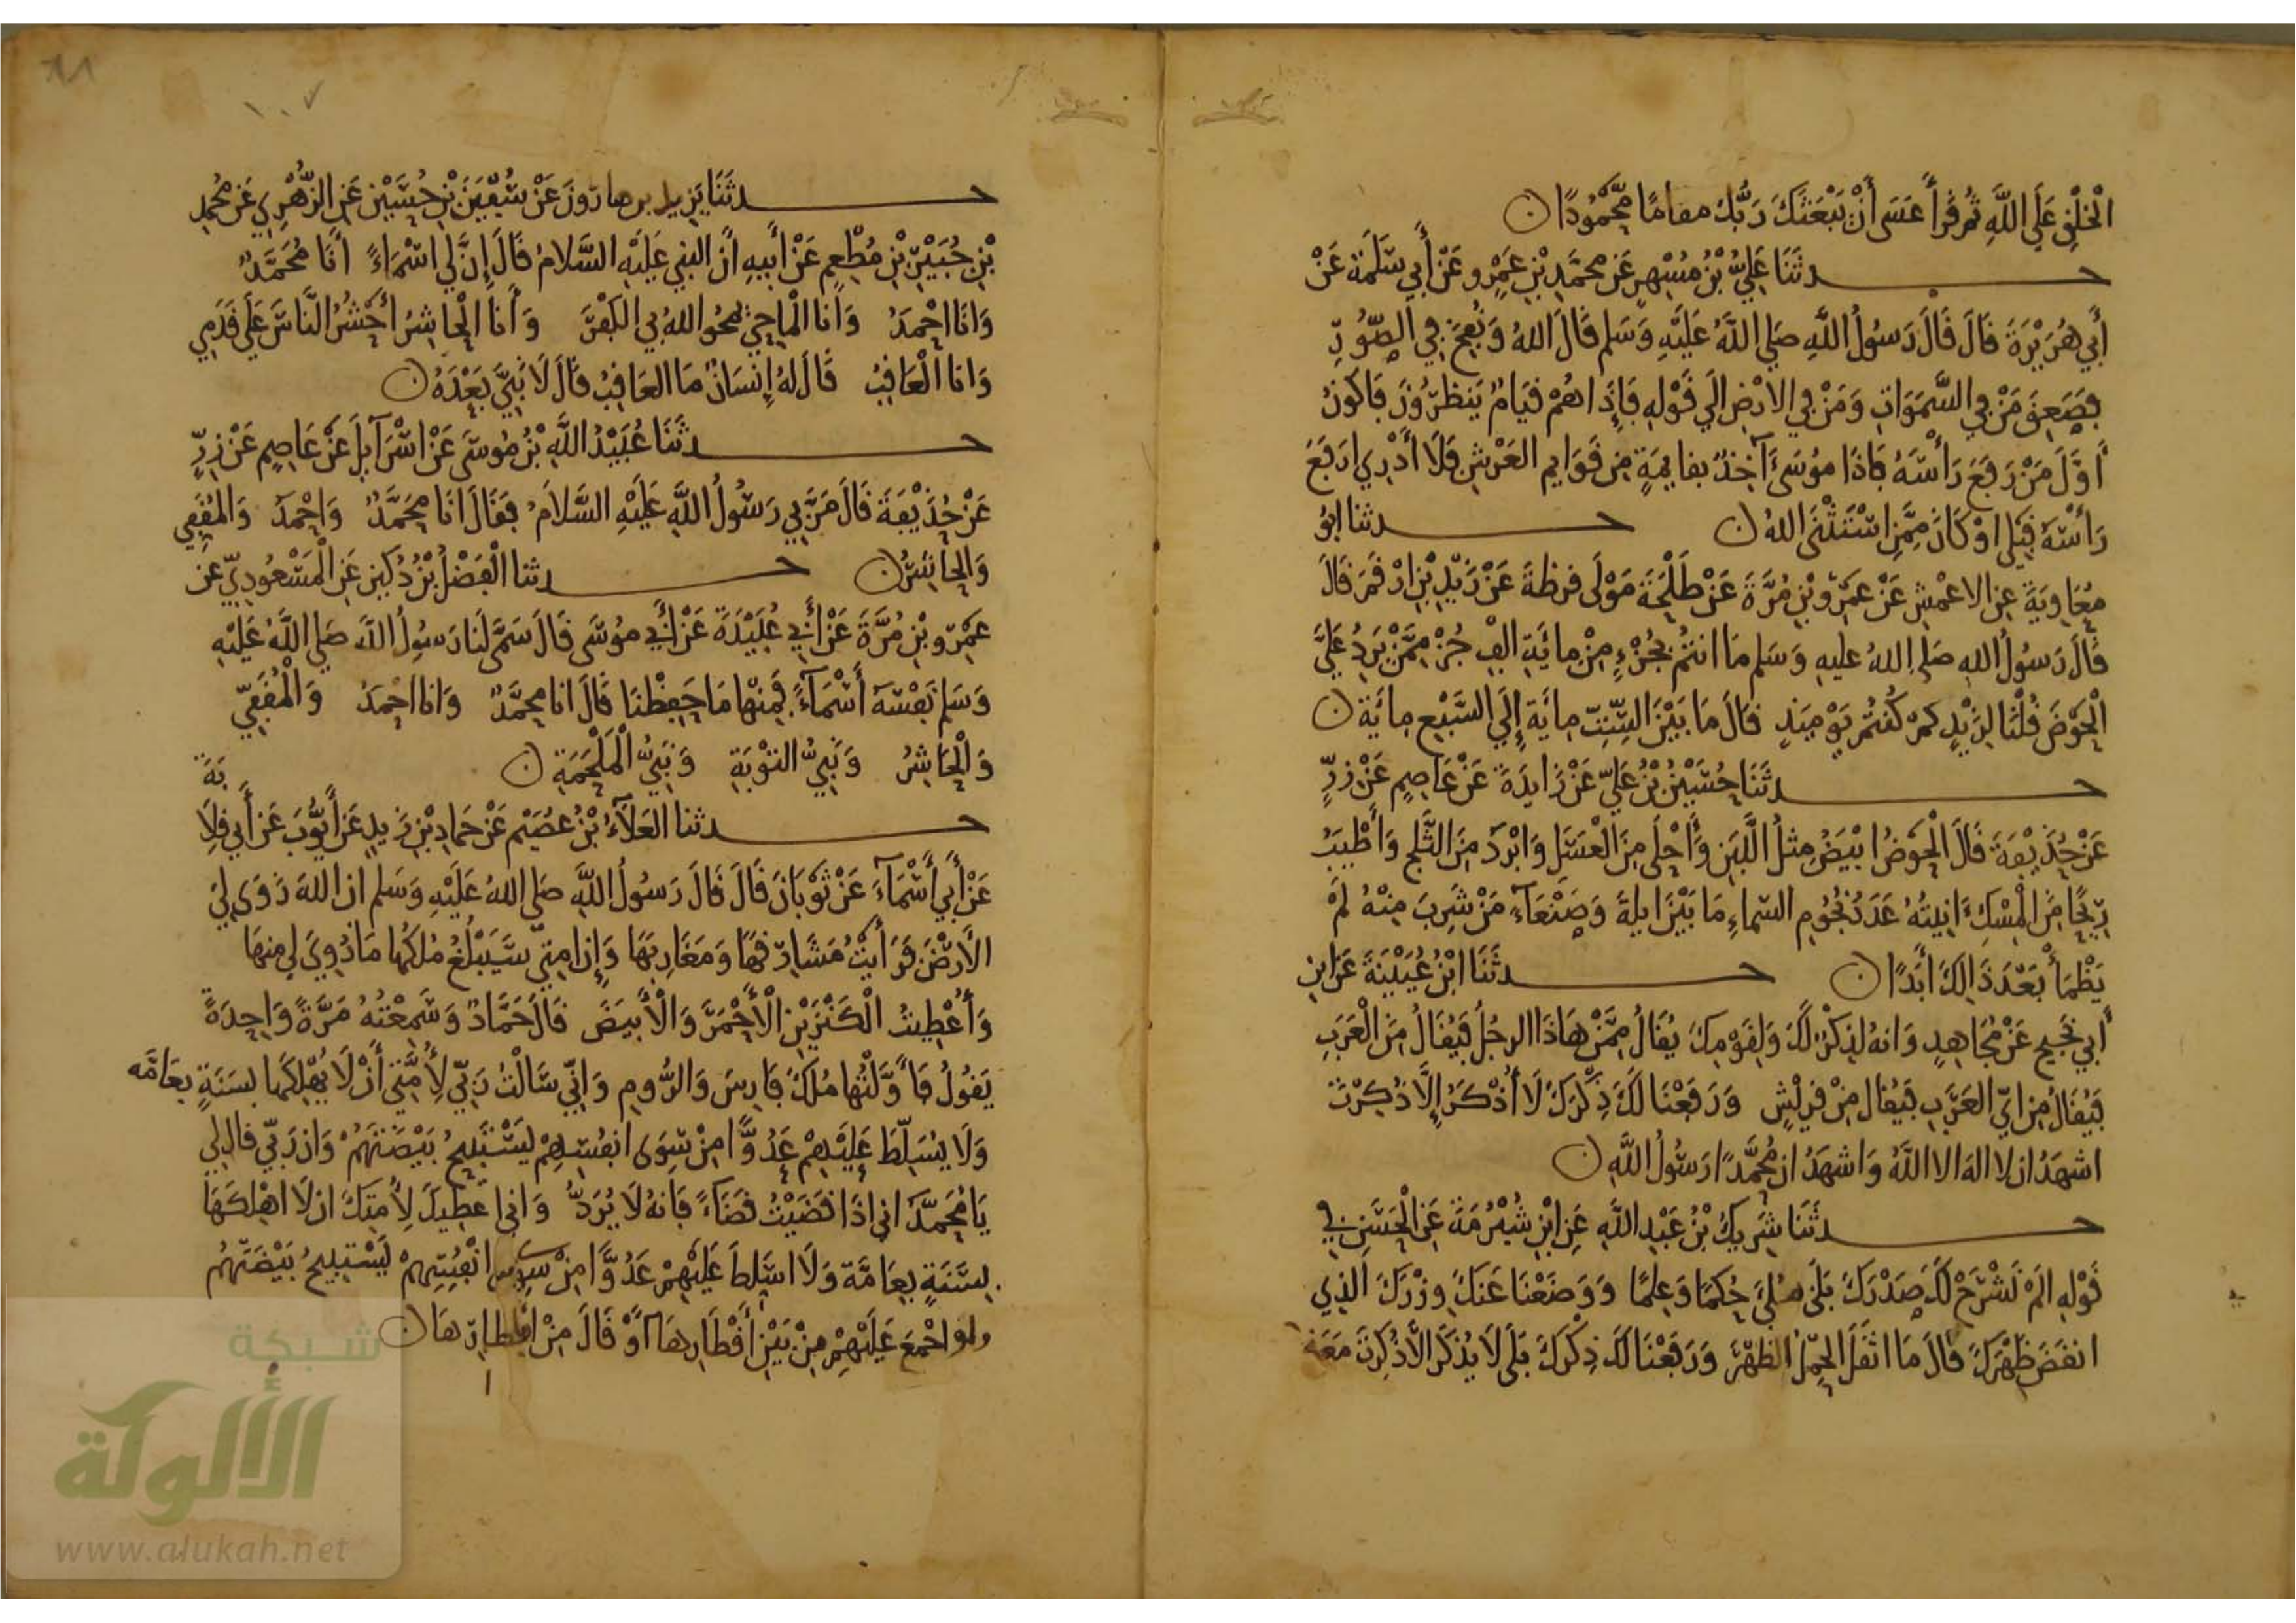 الْخَلْقِ عَلَى اللَّهِ ثُمَّ قَرَأَ عَسَى أَنْ يَبْعَثَكَ رَبُّكَ مقامًا مَّحْمُودًا ن
حدثَنَا عَلِيُّ بْنُ مُسْهِرٍ عَن محمَّدِ بْنِ عَمْرٍو عَنْ أَبِي سَلَمَةَ عَنْ
أَبِي هُرَيْرَةَ قَالَ قَالَ رَسُولُ اللَّهِ صَلي اللَّهُ عَلَيْهِ وَسَلم قَالَ اللهُ وَنُفِخَ فِي الصُّورِ
فَصَعِقَ مَنْ فِي السَّمَوَاتِ وَمَنْ فِي الارْضِ الَي قَوْلِهِ فَإِذَا هُمْ قيَامٌ يَنظرُونَ فَاكُونُ
أَوَّلَ مَنْ رَفَعَ رَأْسَهُ فَاذَا مُوسَى آخِذٌ بقايمَةٍ مِن قَوَايمِ العَرْشِ فَلَا أَدْرِي ارَفَعَ
رَأْسَهُ قَبْلِي اوْ كَانَ مِمَّنِ اسْتَثْنَى اللهُ ن حدثنا ابُو
مُعَاوِيَةَ عن الاعْمَشِ عَنْ عَمْرِو بْنِ مُرَّةَ عَنْ طَلْحَةَ مَوْلَى قرظةَ عَنْ زَيْدِ بْنِ ارْقَمَ قَالَ
قَالَ رَسُولُ اللهِ صَلى اللهُ عليهِ وَسَلم مَا انتُمْ بِجُزْءٍ مِنْ مِائَةِ الْفِ جُزْءٍ مِمَّنْ يَرِدُ عَلَيَّ
الْحَوْضَ قُلْنَا لِزَيْدٍ كَمْ كُنتُمْ يَوْمَئِذٍ قَالَ مَا بَيْنَ السِّتِّ مِايَةٍ إِلَي السَّبْعِ مِايَة ن
حدثَنَا حُسَيْنُ بْنُ عَلِيٍّ عَنْ زَايدَةَ عَنْ عَاصِمٍ عَنْ زِرٍّ
عَنْ حُذَيْفَةَ قَالَ الْحَوْضُ ابْيَضُ مِثلُ اللَّبَنِ وَأَحْلَى مِنَ الْعَسَلِ وَابْرَدُ مِنَ الثَّلْجِ وَأَطْيَبُ
رِيحًا مِنَ الْمِسْكِ انِيتُهُ عَدَدُ نُجُومِ السماءِ مَا بَيْنَ ايلةَ وَصَنْعَآءَ مَنْ شَرِبَ مِنْهُ لَمْ
يَظْمَأْ بَعْدَ ذَالِكَ أَبَدًا ن حدثَنَا ابْنُ عُيَيْنَةَ عَن ابنِ
أَبِي نَجِيحٍ عَنْ مُجَاهِدٍ وَانهُ لَذِكْرٌ لَكَ وَلِقَوْمِكَ يُقَالُ مِمَّنْ هَاذَا الرجُلُ فَيُقَالُ مِنَ الْعَرَبِ
فَيُقَالُ مِن ايِّ العَرَبِ فَيُقال مِنْ قريْشٍ وَرَفَعْنَا لَكَ ذِكْرَكَ لَا أُذْكَرُ إِلَّا ذُكِرْتَ
اشهَدُ ان لا اله الا اللَّهُ وَاشهَدُ ان مُحَمَّدًا رَسُولُ اللَّهِ ن
حدثَنَا شَرِيكُ بْنُ عَبْدِ اللَّهِ عَنِ ابْنِ شُبْرُمَةَ عَنِ الْحَسَنِ فِي
قَوْلِهِ الَمْ نَشْرَحْ لَكَ صَدْرَكَ بَلَى مُلِيَ حُكمًا وَعِلمًا وَوَضَعْنَا عَنكَ وِزْرَكَ الذِي
انقَضَ ظَهْرَكَ قَالَ مَا اثقَلَ الحِمْلُ الظَّهْرَ وَرَفَعْنَا لَكَ ذِكْرَكَ بَلَى لَا يُذكَرُ الَّا ذُكِرْتَ مَعَهُ
حدثَنَا يَزِيدُ بن هَارُونَ عَنْ سُفْيَنَ بْنِ حُسَيْنٍ عَنِ الزُّهْرِيِ عَن مُحمدِ
بْنِ جُبَيْرِ بْنِ مُطْعِمٍ عَنْ أَبِيهِ انَّ النبيَ عَلَيْهِ السَّلَامُ قَالَ إِنَّ لِي اسْمَاءً أَنَا مُحَمَّدٌ
وَانَا احْمَدُ وَانا الْمَاحِيْ يَمحُو اللهُ بِيَ الكُفْرَ وَأَنا الْحَاشِرُ أُحْشُرُ النَّاسَ عَلَي قَدَمِي
وَانا الْعَاقِبُ قَالَ لَهُ إِنسَانٌ مَا العَاقِبُ قَالَ لَا نَبِيَّ بَعْدَهُ ن
حدثَنَا عُبَيْدُ اللَّهِ بْنُ مُوسَى عَنْ اسْرَآيلَ عَنْ عَاصِمٍ عَنْ زِرٍّ
عَنْ حُذَيْفَةَ قَالَ مَرَّ بِي رَسُولُ اللَّهِ عَلَيْهِ السَّلَامُ فَقَالَ انَا مُحَمَّدٌ وَاحْمَدُ وَالمُقَفِي
وَالْحَاشِرُ ن حدثنا الْفَضْلُ بْنُ دُكَينٍ عَنِ الْمَسْعُودِيِّ عن
عَمْرِو بْنِ مُرَّةَ عَنْ أَبِي عُبَيْدَةَ عَنْ أَبِي مُوسَى قَالَ سَمَّى لَنَا رَسُولُ اللَّهِ صَلي اللَّهُ عَلَيْهِ
وَسَلم نَفْسَهُ أَسْمَآءً فَمِنهَا مَا حَفِظْنَا قَالَ انا مُحمَّدٌ وَانا احْمَدُ وَالْمُقَفِّي
وَالْحَاشِرُ وَنَبِيُّ التوْبَةِ وَنَبِيُّ الْمَلْحَمَةِ ن
بَةَ
حدثنا العَلَاءُ بْنُ عُصَيْمٍ عَنْ حَمادِ بْنِ زَيدٍ عَنْ أَيُّوبَ عَنْ أَبِي قِلَا
عَنْ أَبِي أَسْمَآءَ عَنْ ثَوْبَانَ قَالَ قَالَ رَسُولُ اللَّهِ صَلي اللهُ عَلَيْهِ وَسَلم ان اللهَ زَوَى لِيَ
الأَرْضَ فَرَأَيْتُ مَشَارِقهَا وَمَغَارِبَهَا وَإِن امتِي سَيَبْلُغُ مُلكُها مَا زُوِيَ لِي مِنهَا
وَأُعْطِيتُ الْكَنْزَيْنِ الْأَحْمَرَ وَالْأَبيَضَ قَالَ حَمَّادٌ وَسَمِعْتُهُ مَرَّةً وَاحِدَةً
يَقُولُ فَأَوَّلْتُهَا مُلكَ فَارِسَ وَالرُّومِ وَإِنِّي سَالْتُ رَبِّي لِأُمَّتِي أَنْ لَا يُهْلِكَهَا بسَنَةٍ بعَامَّه
وَلَا يُسَلِّطَ عَلَيْهِمْ عَدُوًّا مِنْ سِوَى انفُسِهِمْ لِيَسْتَبِيحُ بَيْضَتَهُمْ وَان رَبِّي قال لِي
يَا مُحَمَّدُ اني اذَا قَضَيْتُ قضَآءً فَإِنهُ لَا يُرَدُّ وَاني اعطِيكَ لِأُمَّتِكَ ان لَا اهْلِكَهَا
بِسَنَةٍ بعَامَّة وَلَا اسَلِّطَ عَلَيْهِمْ عَدُوًّا مِنْ سِوى انْفُسِهِمْ لِيَسْتَبِيحُ بَيْضَتَهُمْ
ولو اجْمعَ عَلَيْهِمْ مِنْ بَيْنِ أَقْطَارِهَا أَوْ قَالَ مِنْ اقطارِهَا ن
شبكة
الألوكة
www.alukah.net